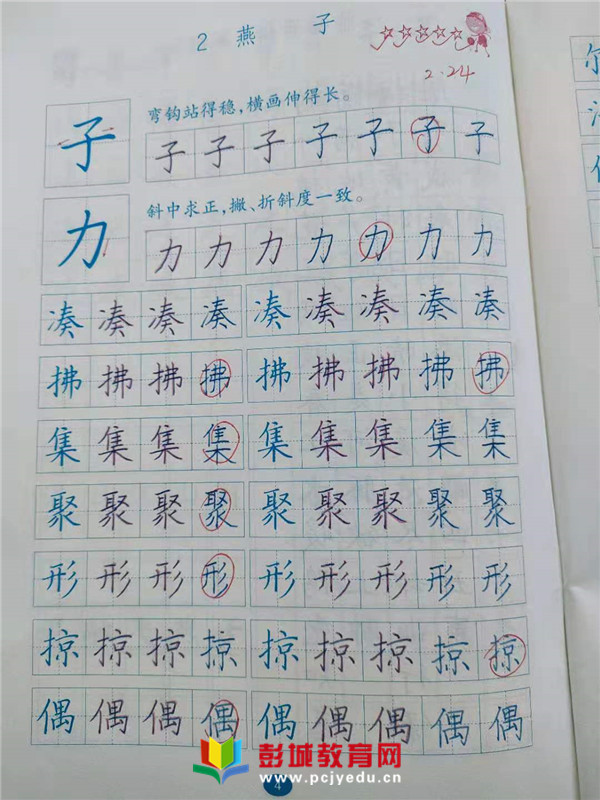 2 燕 子
2.24
弯钩站得稳，横画伸得长。
子 子 子 子 子 子 子 子
斜中求正，撇、折斜度一致。
力 力 力 力 力 力 力 力
凑 凑 凑 凑 凑 凑 凑 凑 凑
拂 拂 拂 拂 拂 拂 拂 拂 拂
集 集 集 集 集 集 集 集 集
聚 聚 聚 聚 聚 聚 聚 聚 聚
形 形 形 形 形 形 形 形 形
掠 掠 掠 掠 掠 掠 掠 掠 掠
偶 偶 偶 偶 偶 偶 偶 偶 偶
彭城教育网
www.pcjyedu.cn
4